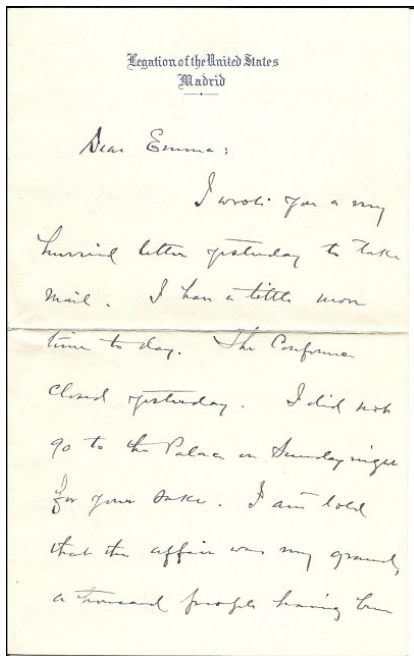 Legation of the United States
Madrid
Dear Emma:
I wrote you a very
hurried letter yesterday to take
mail. I have a little more
time to day. The Conference
closed yesterday. I did not
go to the Palace on Sunday night
for your sake. I am told
that the affair was very grand,
a thousand people having been